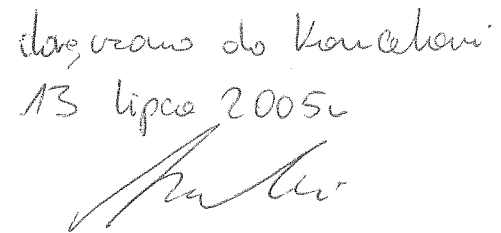 doręczono do Kancelarii
13 lipca 2005r